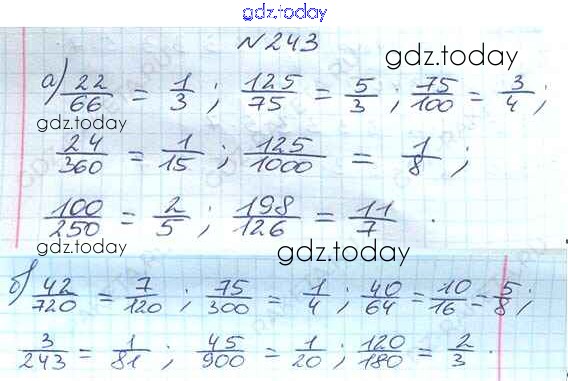 gdz.today
№ 243
gdz.today
а) 22/66 = 1/3 ; 125/75 = 5/3 ; 75/100 = 3/4 ;
gdz.today
24/360 = 1/15 ; 125/1000 = 1/8 ;
100/250 = 2/5 ; 198/126 = 11/7 .
gdz.today
gdz.today
б) 42/720 = 7/120 ; 75/300 = 1/4 ; 40/64 = 10/16 = 5/8 ;
3/243 = 1/81 ; 45/900 = 1/20 ; 120/180 = 2/3 .